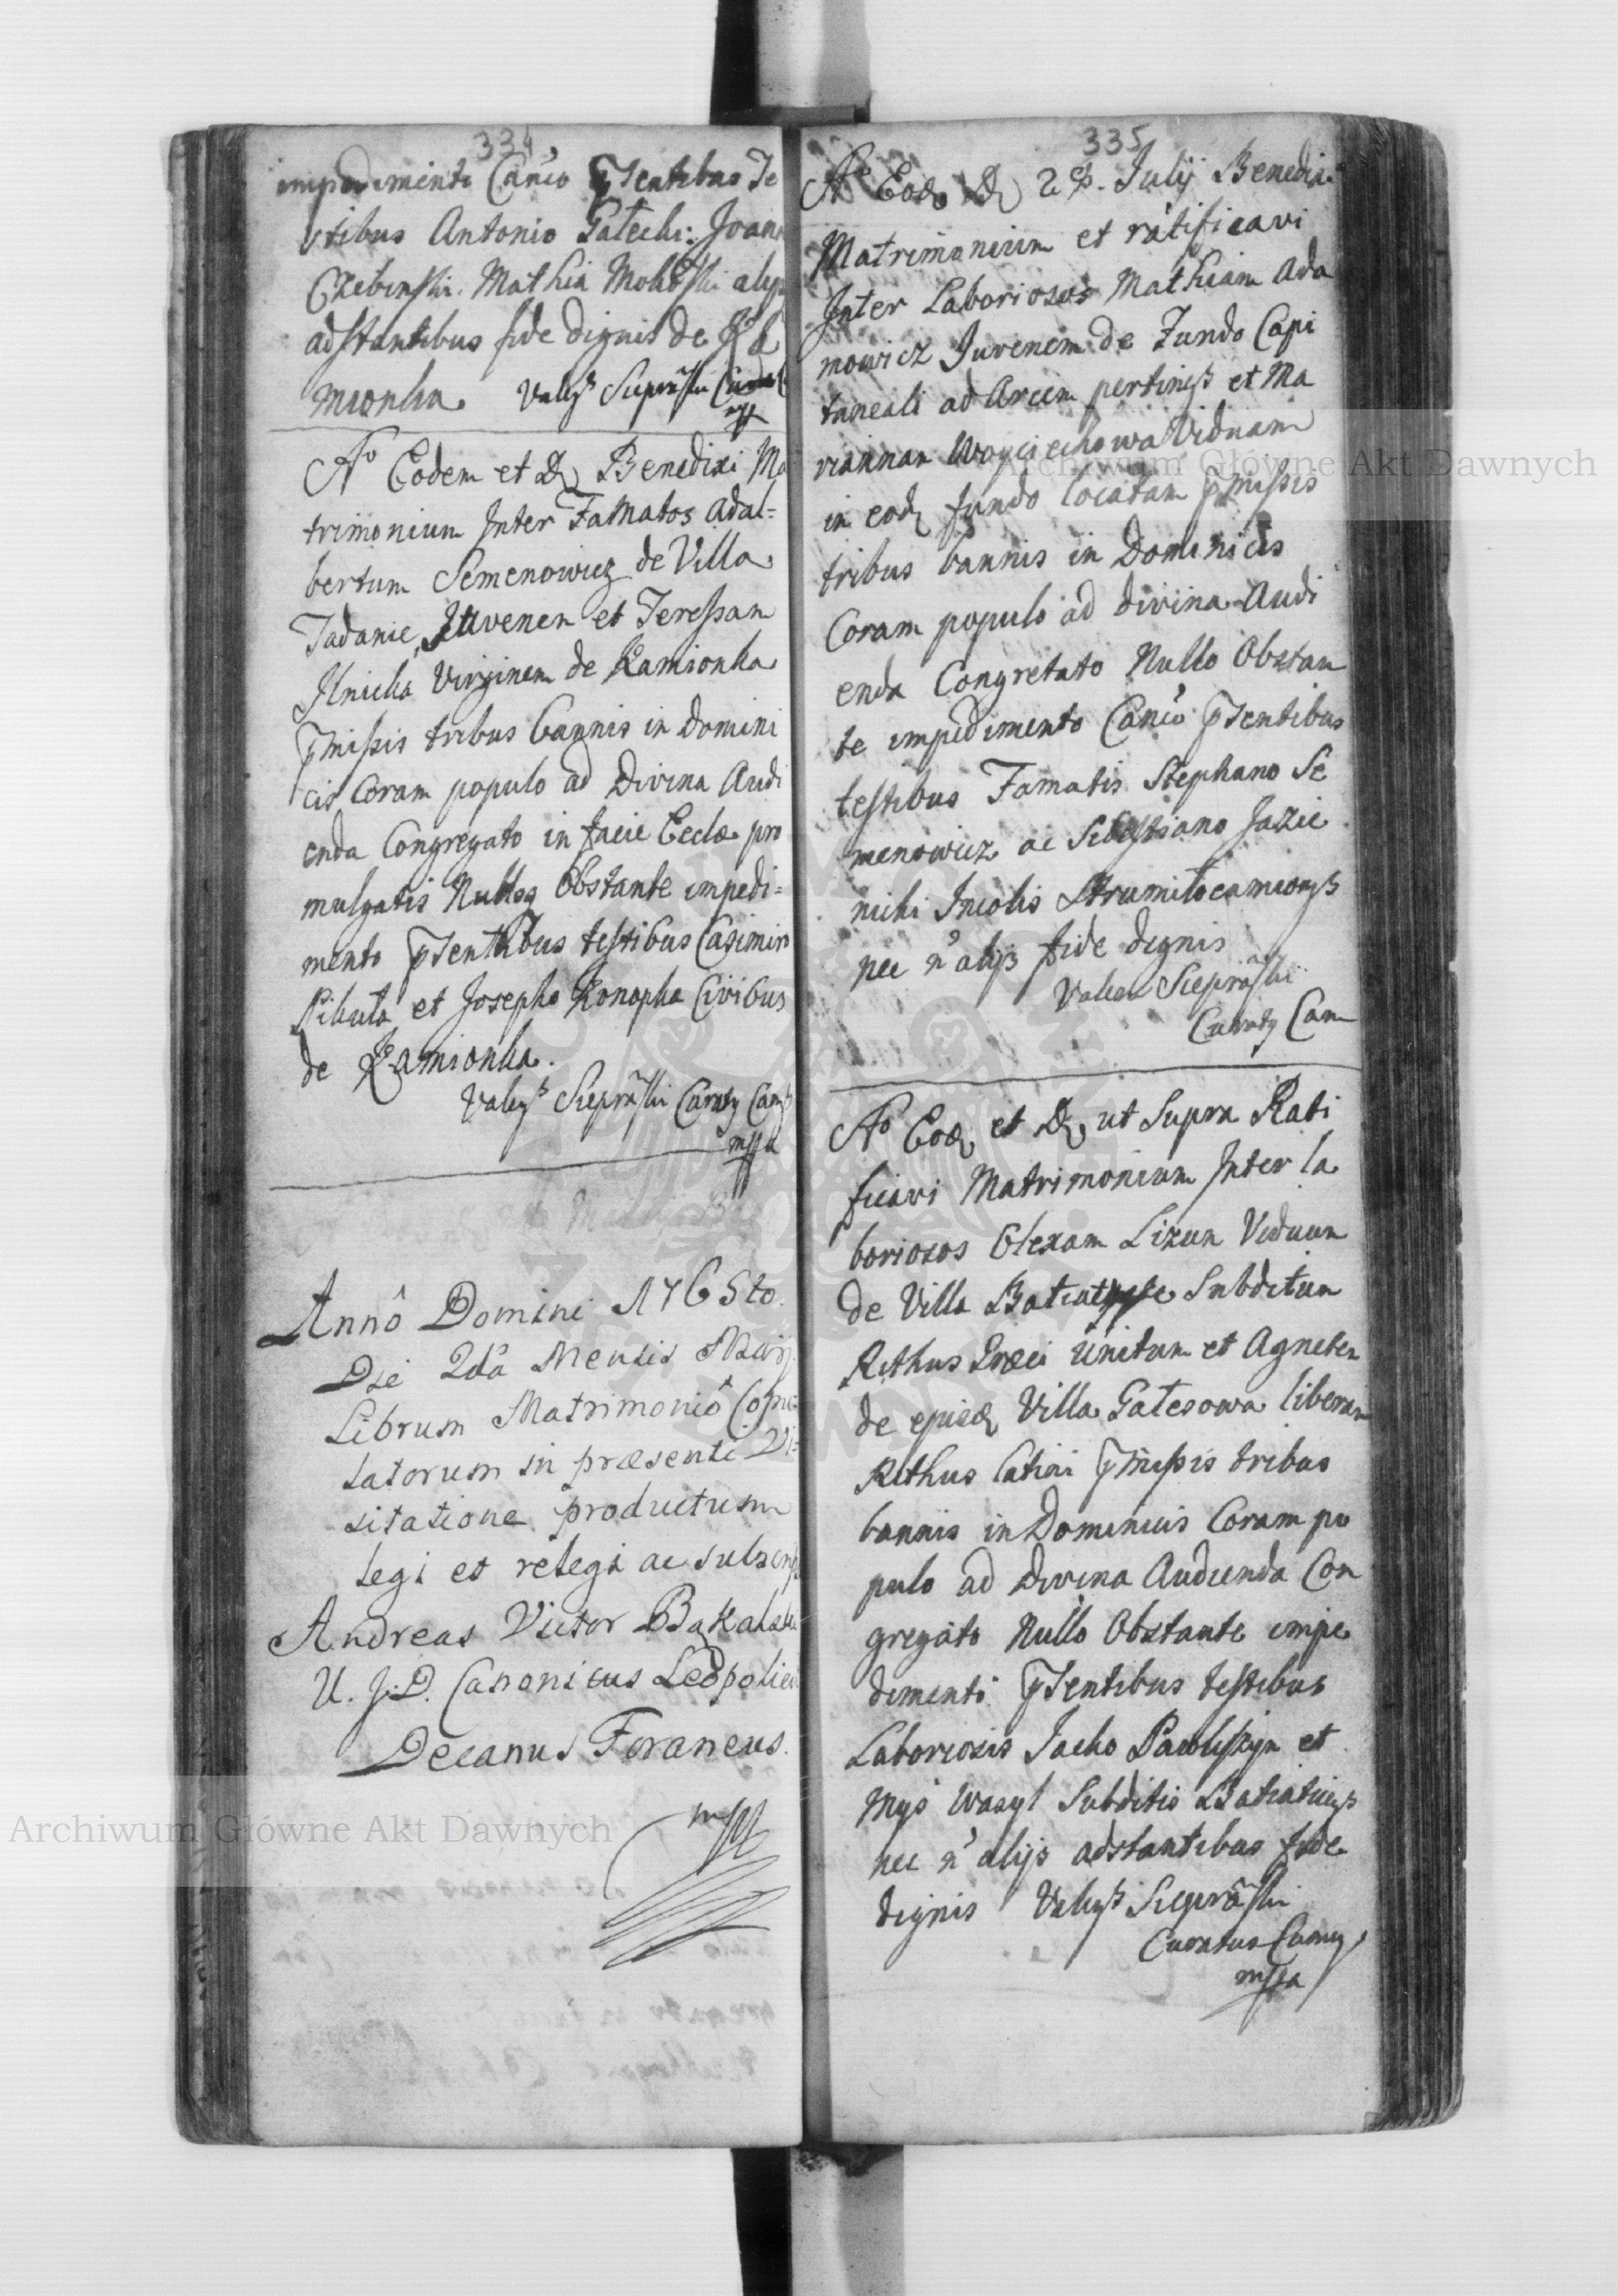 334
impedimento Canco pntentibus Te
stibus Antonio Galecki: Joan
Chebinski. Mathia alijs
adstantibus fide dignis de Ka
mionka. Valęs Sieprãski
Ao Eodem et D Benedixi Ma
trimonium Inter Famatos Adal=
bertum Semenowicz de Villa
Tadanie, Juvenen et Teressam
Ilnicka Virginem de Kamionka
pmissis tribus bannis in Domini
cis Coram populo ad Divina Audi
enda Congregato in facie Eccłæ pro
mulgatis Nulloq Obstante impedi=
mento pntentibus testibus Casimiro
Pikuła et Josepho Konopka Civibus
de Kamionka.
Valęs Sieprãski Curatq Cam
mppa
Annô Domini 1765to.
Die 2dâ Mensis Maij
Librum Matrimoniô Copu=
latorum in præsenti Vi=
sitatione productum
legi et relegi ac subscripsi
Andreas Victor Bąkalski
U. J. D. Canonicus Leopolien
Decanus Foraneus.
mpp
335
Ao Eoď D 2 Julij Benedixi
Matrimonium et ratificavi
Inter Laboriosos Mathiam Ada
mowicz Juvenem de Fundo Capi
taneali ad Arcem pertinęs et Ma
riannam Woyciechowa Viduam
in eodę fundo locatam pmissis
tribus bannis in Dominicis
Coram populo ad divina Audi
enda Congretato Nullo Obstan
te impedimento Canco pntentibus
testibus Famatis Stephano Se
menowicz ac Sebestiano Jazie
nicki Incolis
nec n alijs fide dignis
Valen Sieprãski
Curatq Cam
Ao Eodę et D, ut Supra Rati
ficavi Matrimonium Inter la
boriosos Olexam Lizun Viduum
de Villa Batiatycze Subditum
Rithus Græci Unitum et Agneten
de epizdę Villa Galesowa liberam
Rithus Latini pmissis tribus
bannis in Dominicis Coram po
pulo ad Divina Audienda Con
gregato Nullo Obstante impe
dimento pntentibus testibus
Laboriosis Jacko Pawliszyn et
Mys Wasyl Subditis Batiatycęs
nec n alijs adstantibus fide
dignis Valęs Sieprãski
Curatus Camę
mppa
Archiwum Główne Akt Dawnych
Archiwum Główne Akt Dawnych